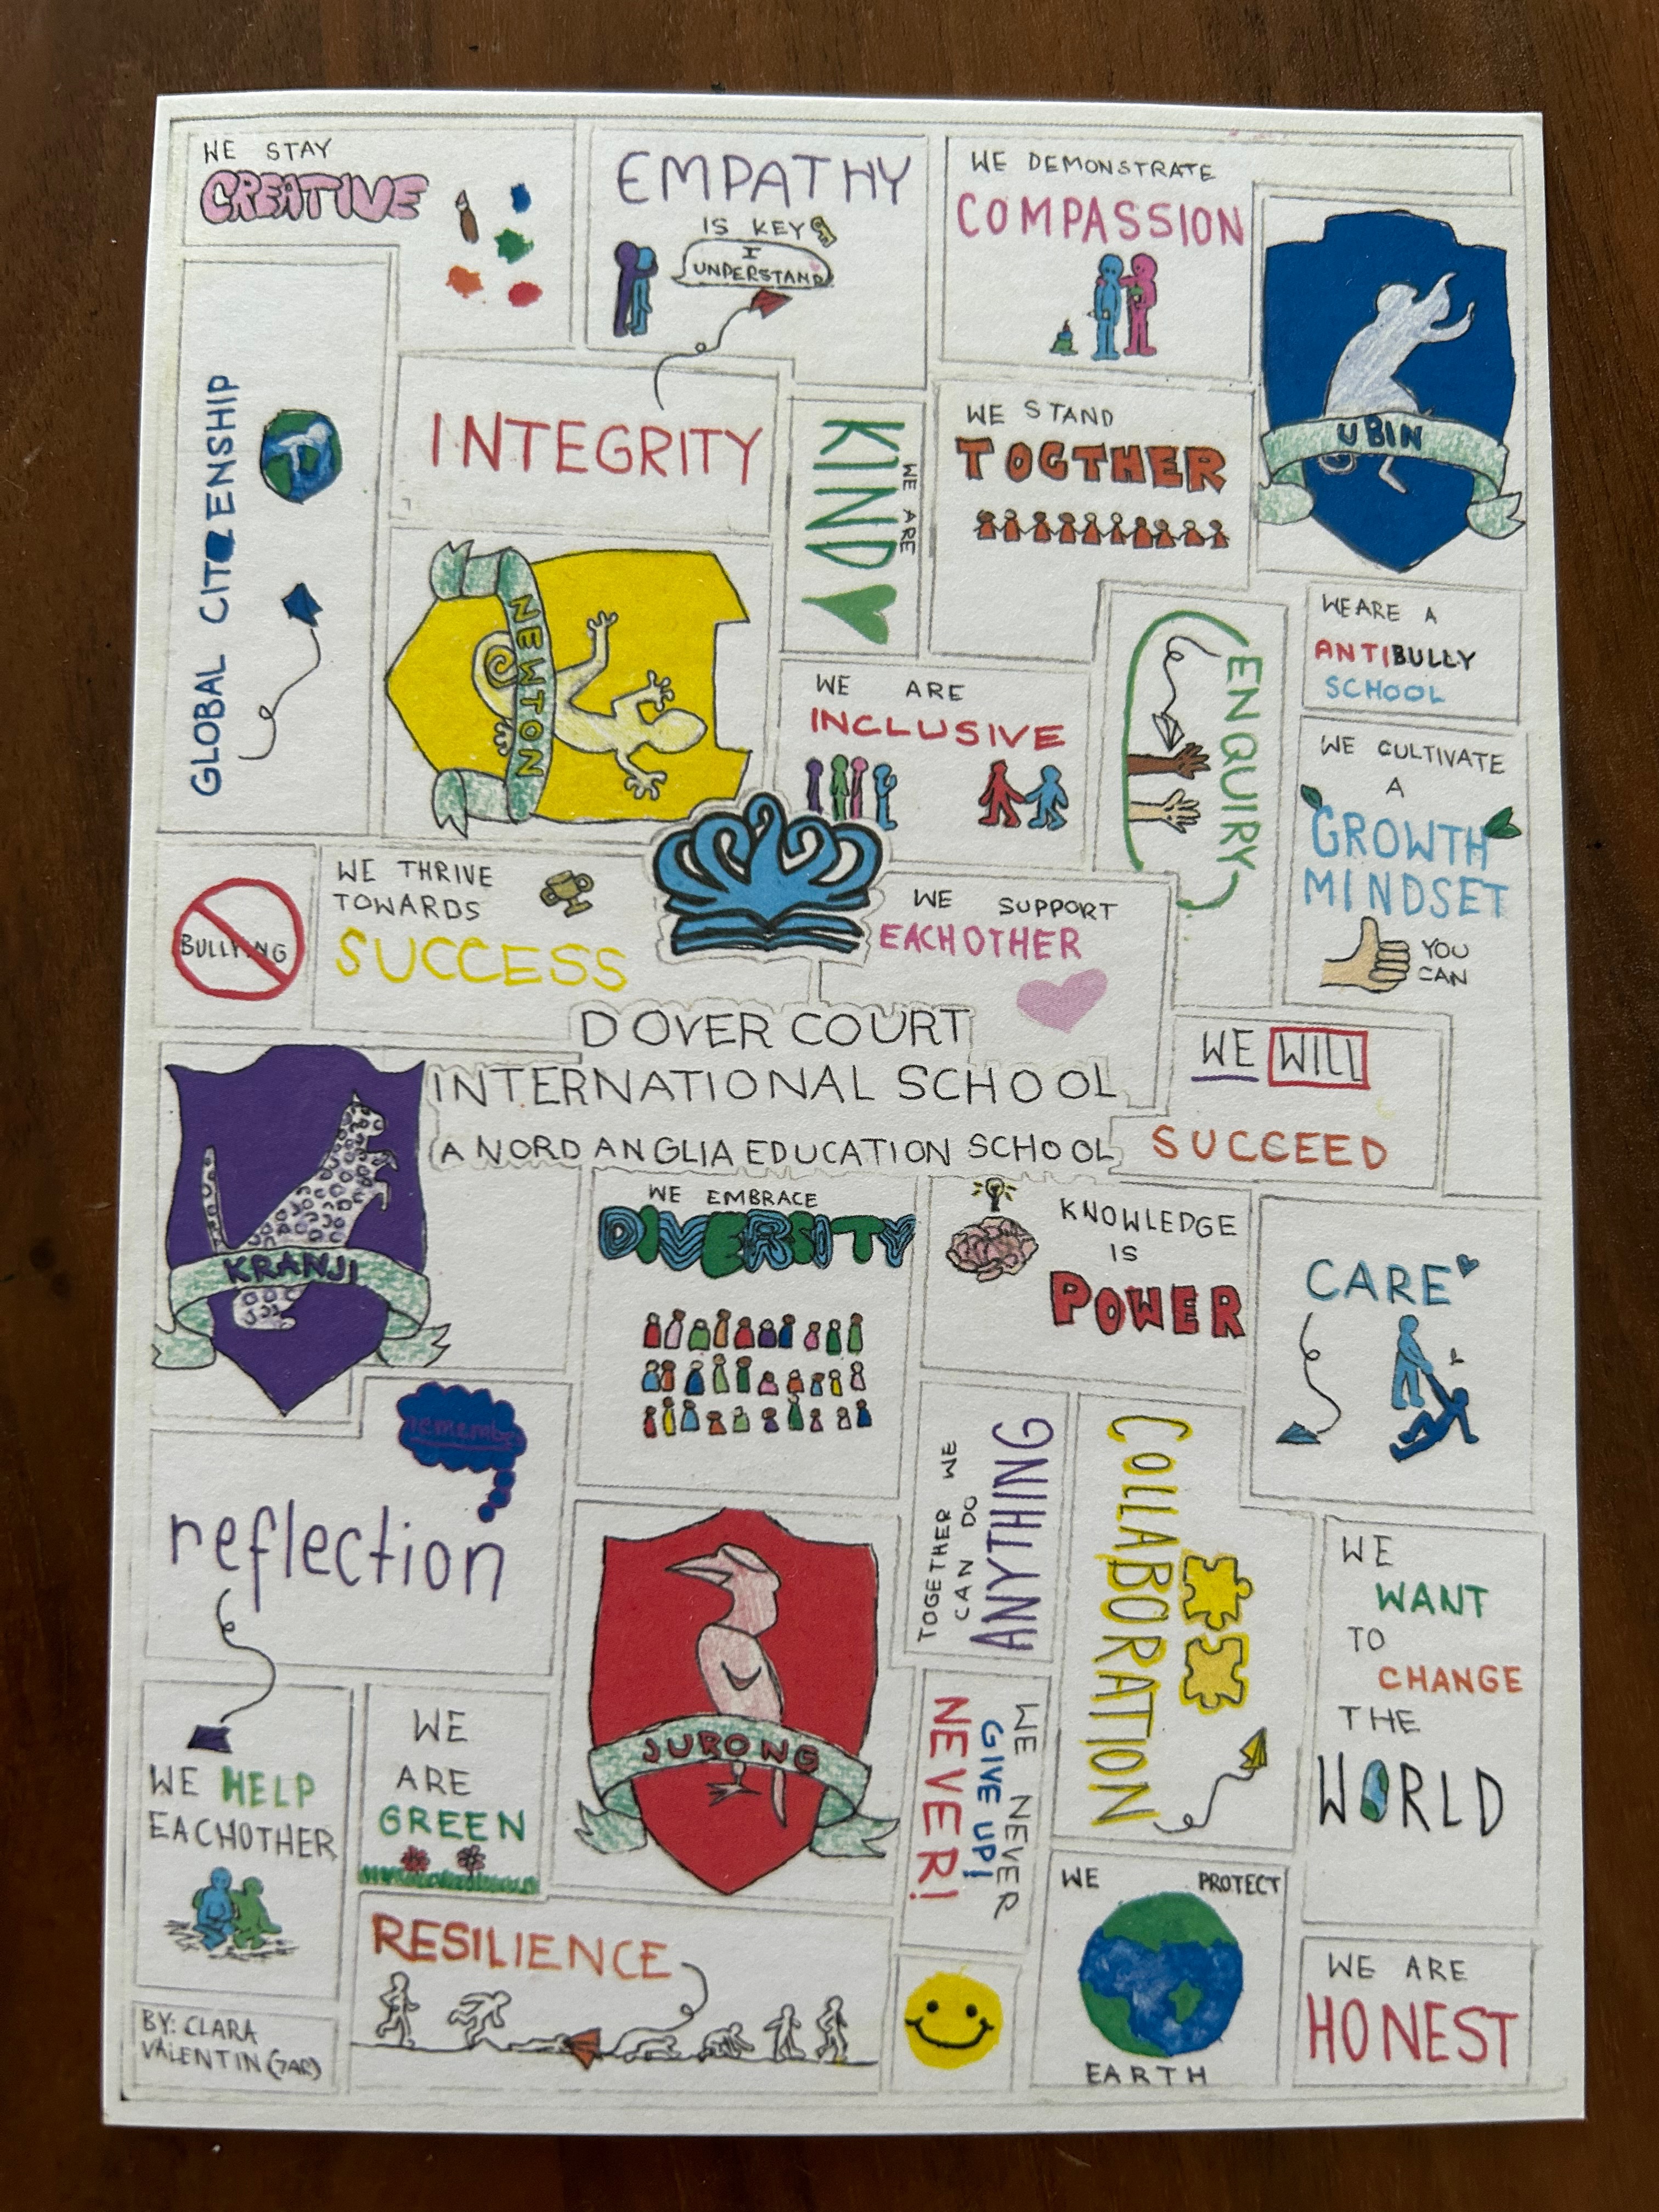 WE STAY
CREATIVE
EMPATHY
IS KEY
I
UNDERSTAND
WE DEMONSTRATE
COMPASSION
UBIN
GLOBAL CITIZENSHIP
INTEGRITY
WE ARE
KIND
WE STAND
TOGTHER
NEWTON
WE ARE
INCLUSIVE
ENQUIRY
WE ARE A
ANTIBULLY
SCHOOL
WE CULTIVATE
A
GROWTH
MINDSET
YOU
CAN
BULLYING
WE THRIVE
TOWARDS
SUCCESS
WE SUPPORT
EACHOTHER
DOVER COURT
INTERNATIONAL SCHOOL
A NORD ANGLIA EDUCATION SCHOOL
WE WILL
SUCCEED
KRANJI
WE EMBRACE
DIVERSITY
KNOWLEDGE
IS
POWER
CARE
remember
reflection
JURONG
TOGETHER WE
CAN DO
ANYTHING
COLLABORATION
WE
WANT
TO
CHANGE
THE
WORLD
WE HELP
EACHOTHER
WE
ARE
GREEN
WE NEVER
GIVE UP!
NEVER!
RESILIENCE
WE PROTECT
EARTH
WE ARE
HONEST
BY: CLARA
VALENTIN (7AR)